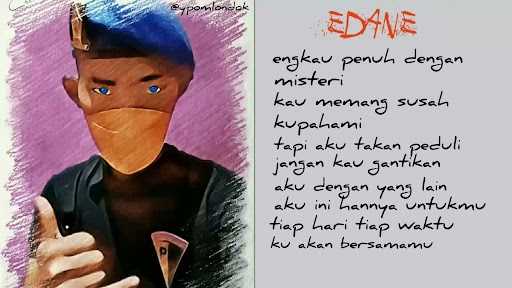 @ypomlondok
EDANE
engkau penuh dengan
misteri
kau memang susah
kupahami
tapi aku takan peduli
jangan kau gantikan
aku dengan yang lain
aku ini hannya untukmu
tiap hari tiap waktu
ku akan bersamamu
P